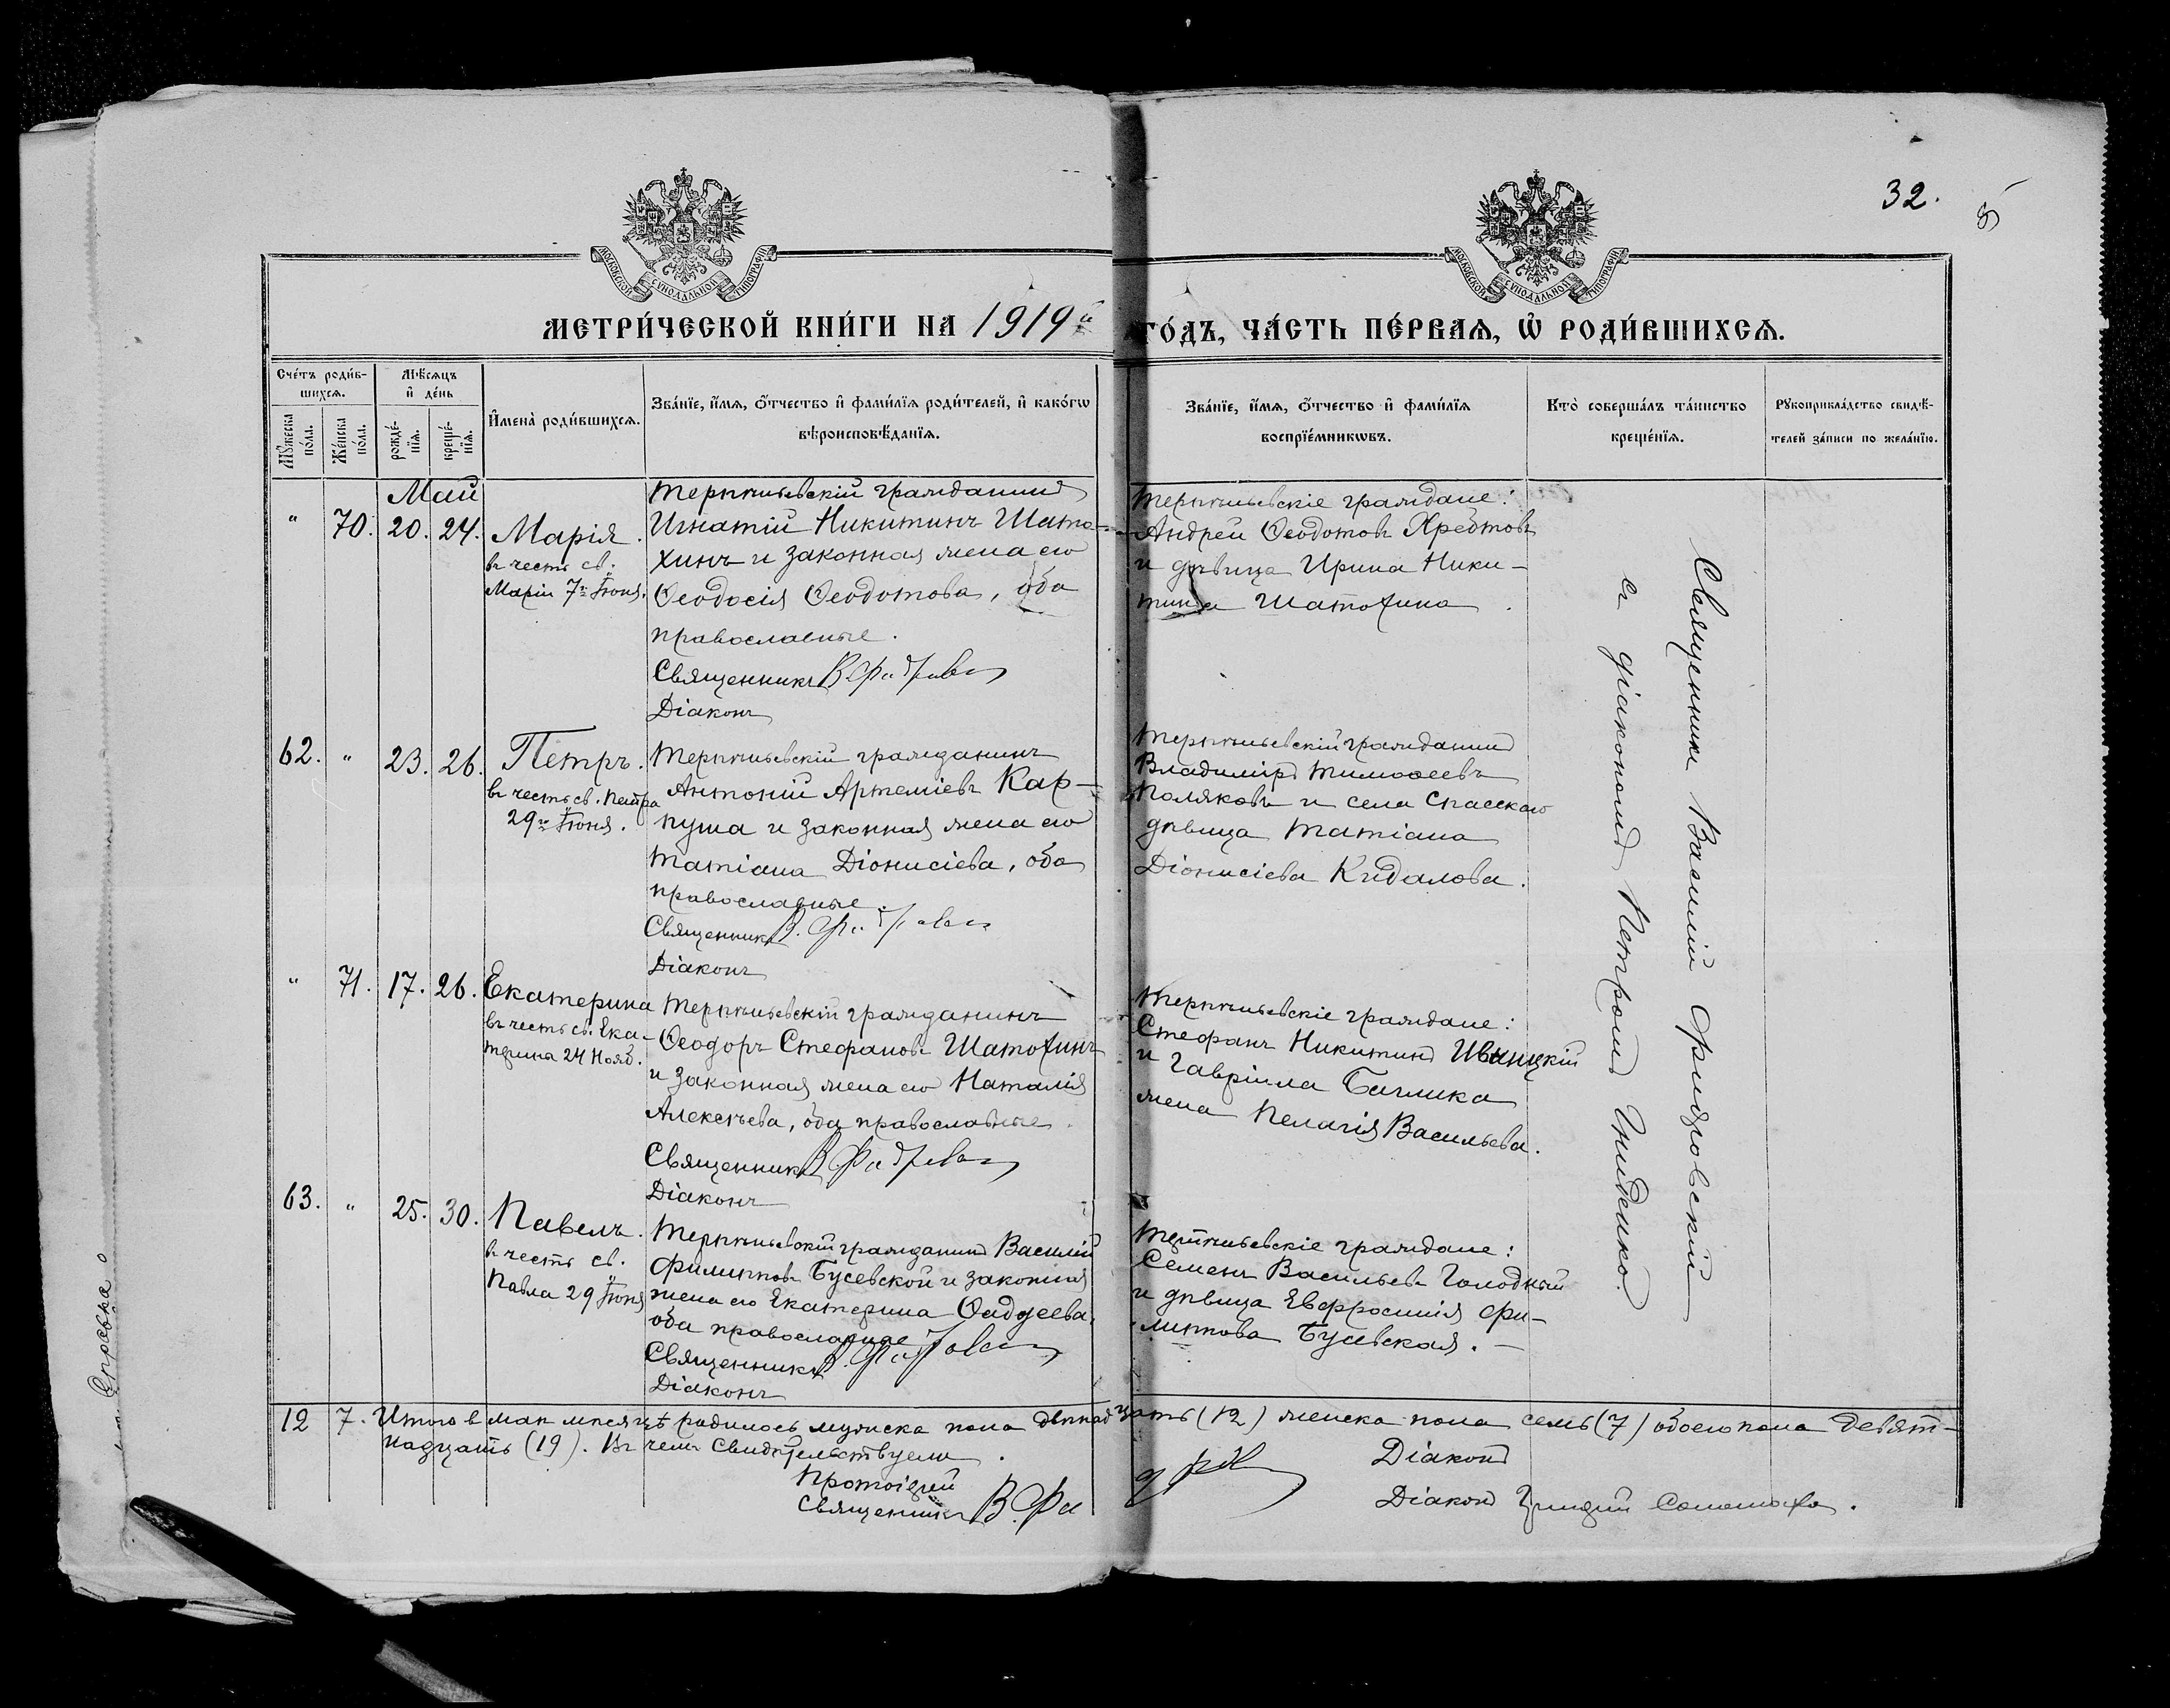 32.
МОСКОВСКОЙ СУНОДАЛЬНОЙ ТИПОГРАФІИ
МОСКОВСКОЙ СУНОДАЛЬНОЙ ТИПОГРАФІИ
МЕТРИ́ЧЕСКОЙ КНИ́ГИ НА 1919й ГО́ДЪ, ЧА́СТЬ ПЕ́РВАЯ, Ѡ҆ РОДИ́ВШИХСЯ.
Сче́тъ роди́в-
шихся.
Мѣ́сяцъ
и҆ де́нь
Мꙋ́жеска по́ла.
Же́нска по́ла.
рожде́-
нїя.
креще́-
нїя.
И҆мена̀ роди́вшихся.
Зва́нїе, и҆́мя, ѻ҆́тчество и҆ фами́лїя роди́телей, и҆ како́гѡ
вѣроисповѣ́данїя.
Зва́нїе, и҆́мя, ѻ҆́тчество и҆ фами́лїя
воспрїе́мникѡвъ.
Кто̀ соверша́лъ та́инство
креще́нїя.
Рꙋкоприкла́дство свидѣ́-
телей за́писи по жела́нїю.
Май
" 70. 20. 24. Марія.
въ честь св.
Маріи 7го Іюня.
Терпѣньевскій гражданинъ
Игнатій Никитинъ Шато-
хинъ и законная жена его
Ѳеодосія Ѳеодотова, оба
православные.
Священникъ В.
Діаконъ
Терпѣньевскіе граждане:
Андрей Ѳеодотовъ Хребтовъ
и дѣвица Ирина Ники-
тина Шатохина.
62. " 23. 26. Петръ.
въ честь св. Петра
29го Іюня.
Терпѣньевскій гражданинъ
Антоній Артеміевъ Кар-
пуша и законная жена его
Татіана Діонисіева, оба
православные.
Священникъ В.
Діаконъ
Терпѣньевскій гражданинъ
Владиміръ Тимоѳеевъ
Поляковъ и села Спасскаго
дѣвица Татіана
Діонисіева Кидалова.
" 71. 17. 26. Екатерина
въ честь св. Ека-
терина 24 Нояб.
Терпѣньевскій гражданинъ
Ѳеодоръ Стефановъ Шатохинъ
и законная жена его Наталія
Алексѣева, оба православные.
Священникъ В.
Діаконъ
Терпѣньевскіе граждане:
Стефанъ Никитинъ Ивницкій
и Гавріила Баглика
жена Пелагія Васильева.
63. " 25. 30. Павелъ.
въ честь св.
Павла 29 Іюня
Терпѣньевскій гражданинъ Василій
Филипповъ Бусевской и законная
жена его Екатерина Ѳаддеева,
оба православные
Священникъ В.
Діаконъ
Терпѣньевскіе граждане:
Семенъ Васильевъ Голодный
и дѣвица Евфросинія Фи-
липпова Бусевская.
Священникъ Василій Фридровскій
съ діакономъ Петромъ Гниденко.
12 7. Итого в маѣ мѣсяцѣ родилось мужска пола двѣнадцать (12) женска пола семь (7) обоего пола девят-
надцать (19). Въ чемъ свидѣтельствуемъ.
Протоіерей
Священникъ В.
Діаконъ
Діаконъ
Справка